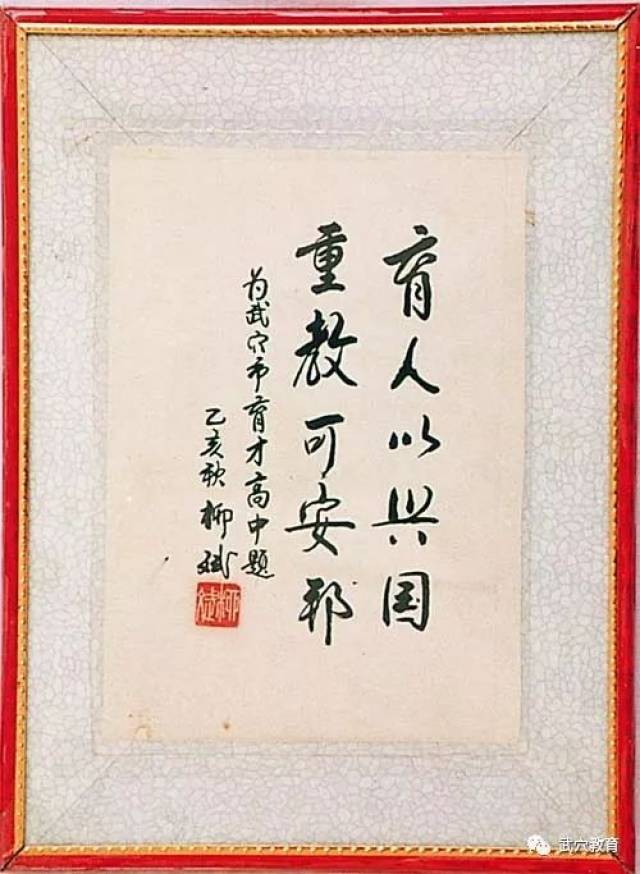 育人以興国
重教可安邦
为武穴市育才高中题
乙亥秋 柳斌
柳斌
武穴教育